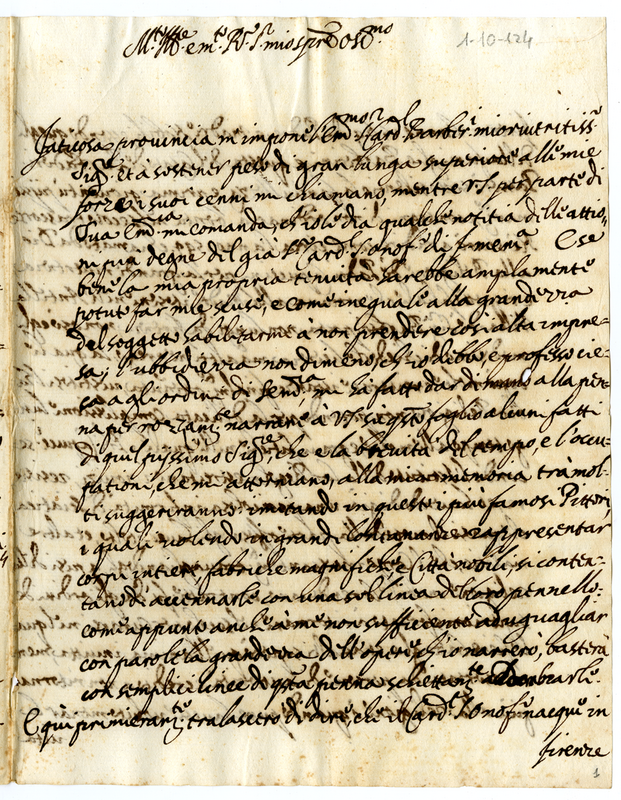 1-10-124
M.to Ill.re e m.to R.do S.r mio P.ron Oss.mo
Faticosa provincia m'impone l'Em.mo S.r Card. Barber.i mio riveritiss.o
Sig.re et à sostener peso di gran lunga superiore alle mie
forze i suoi cenni mi chiamano, mentre V.S. per parte di
Sua Em.za mi comanda, ch'io le dia qualche notitia delle attio-
ni più degne del già S.r Card. S. Onof.o di f. mem.a E se
bene la mia propria tenuità harebbe amplamente
potuto far mie scuse, e come ineguale alla grandezza
del soggetto habilitarmi à non prendere così alta impre-
sa; l'ubbidienza non dimeno, ch'io debbo, e professo cie-
ca agli ordini di S. Em.za mi ha fatto dar di mano alla pen-
na per rozzam.te narrare à V.S. in q.sto foglio alcuni fatti
di quel piissimo Sig.re, che e la brevità del tempo, e l'occu-
pationi, che mi attorniano, alla mia memoria trà mol-
ti suggeriranno: imitando in questo i più famosi Pittori,
i quali volendo in grandi lontananze rappresentar
corpi intieri, fabriche magnifiche, e Città nobili, si conten-
tano di accennarle con una sol linea del loro pennello:
come appunto anche à me non sufficiente ad uguagliar
con parole la grandezza dell'opere, ch'io narrerò, basterà
con semplici linee di q.sta penna schiettam.te adombrarle.
E qui primieram.te tralascerò di dire, che il Card. S. Onof.o nacque in
firenze
1